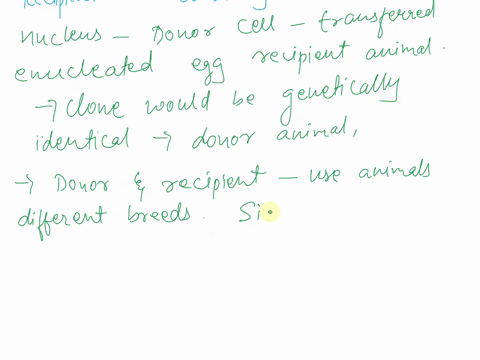 nucleus — Donor cell — transferred
enucleated egg recipient animal.
→ Clone would be genetically
identical → donor animal,
→ Donor & recipient — use animals
different breeds. Si